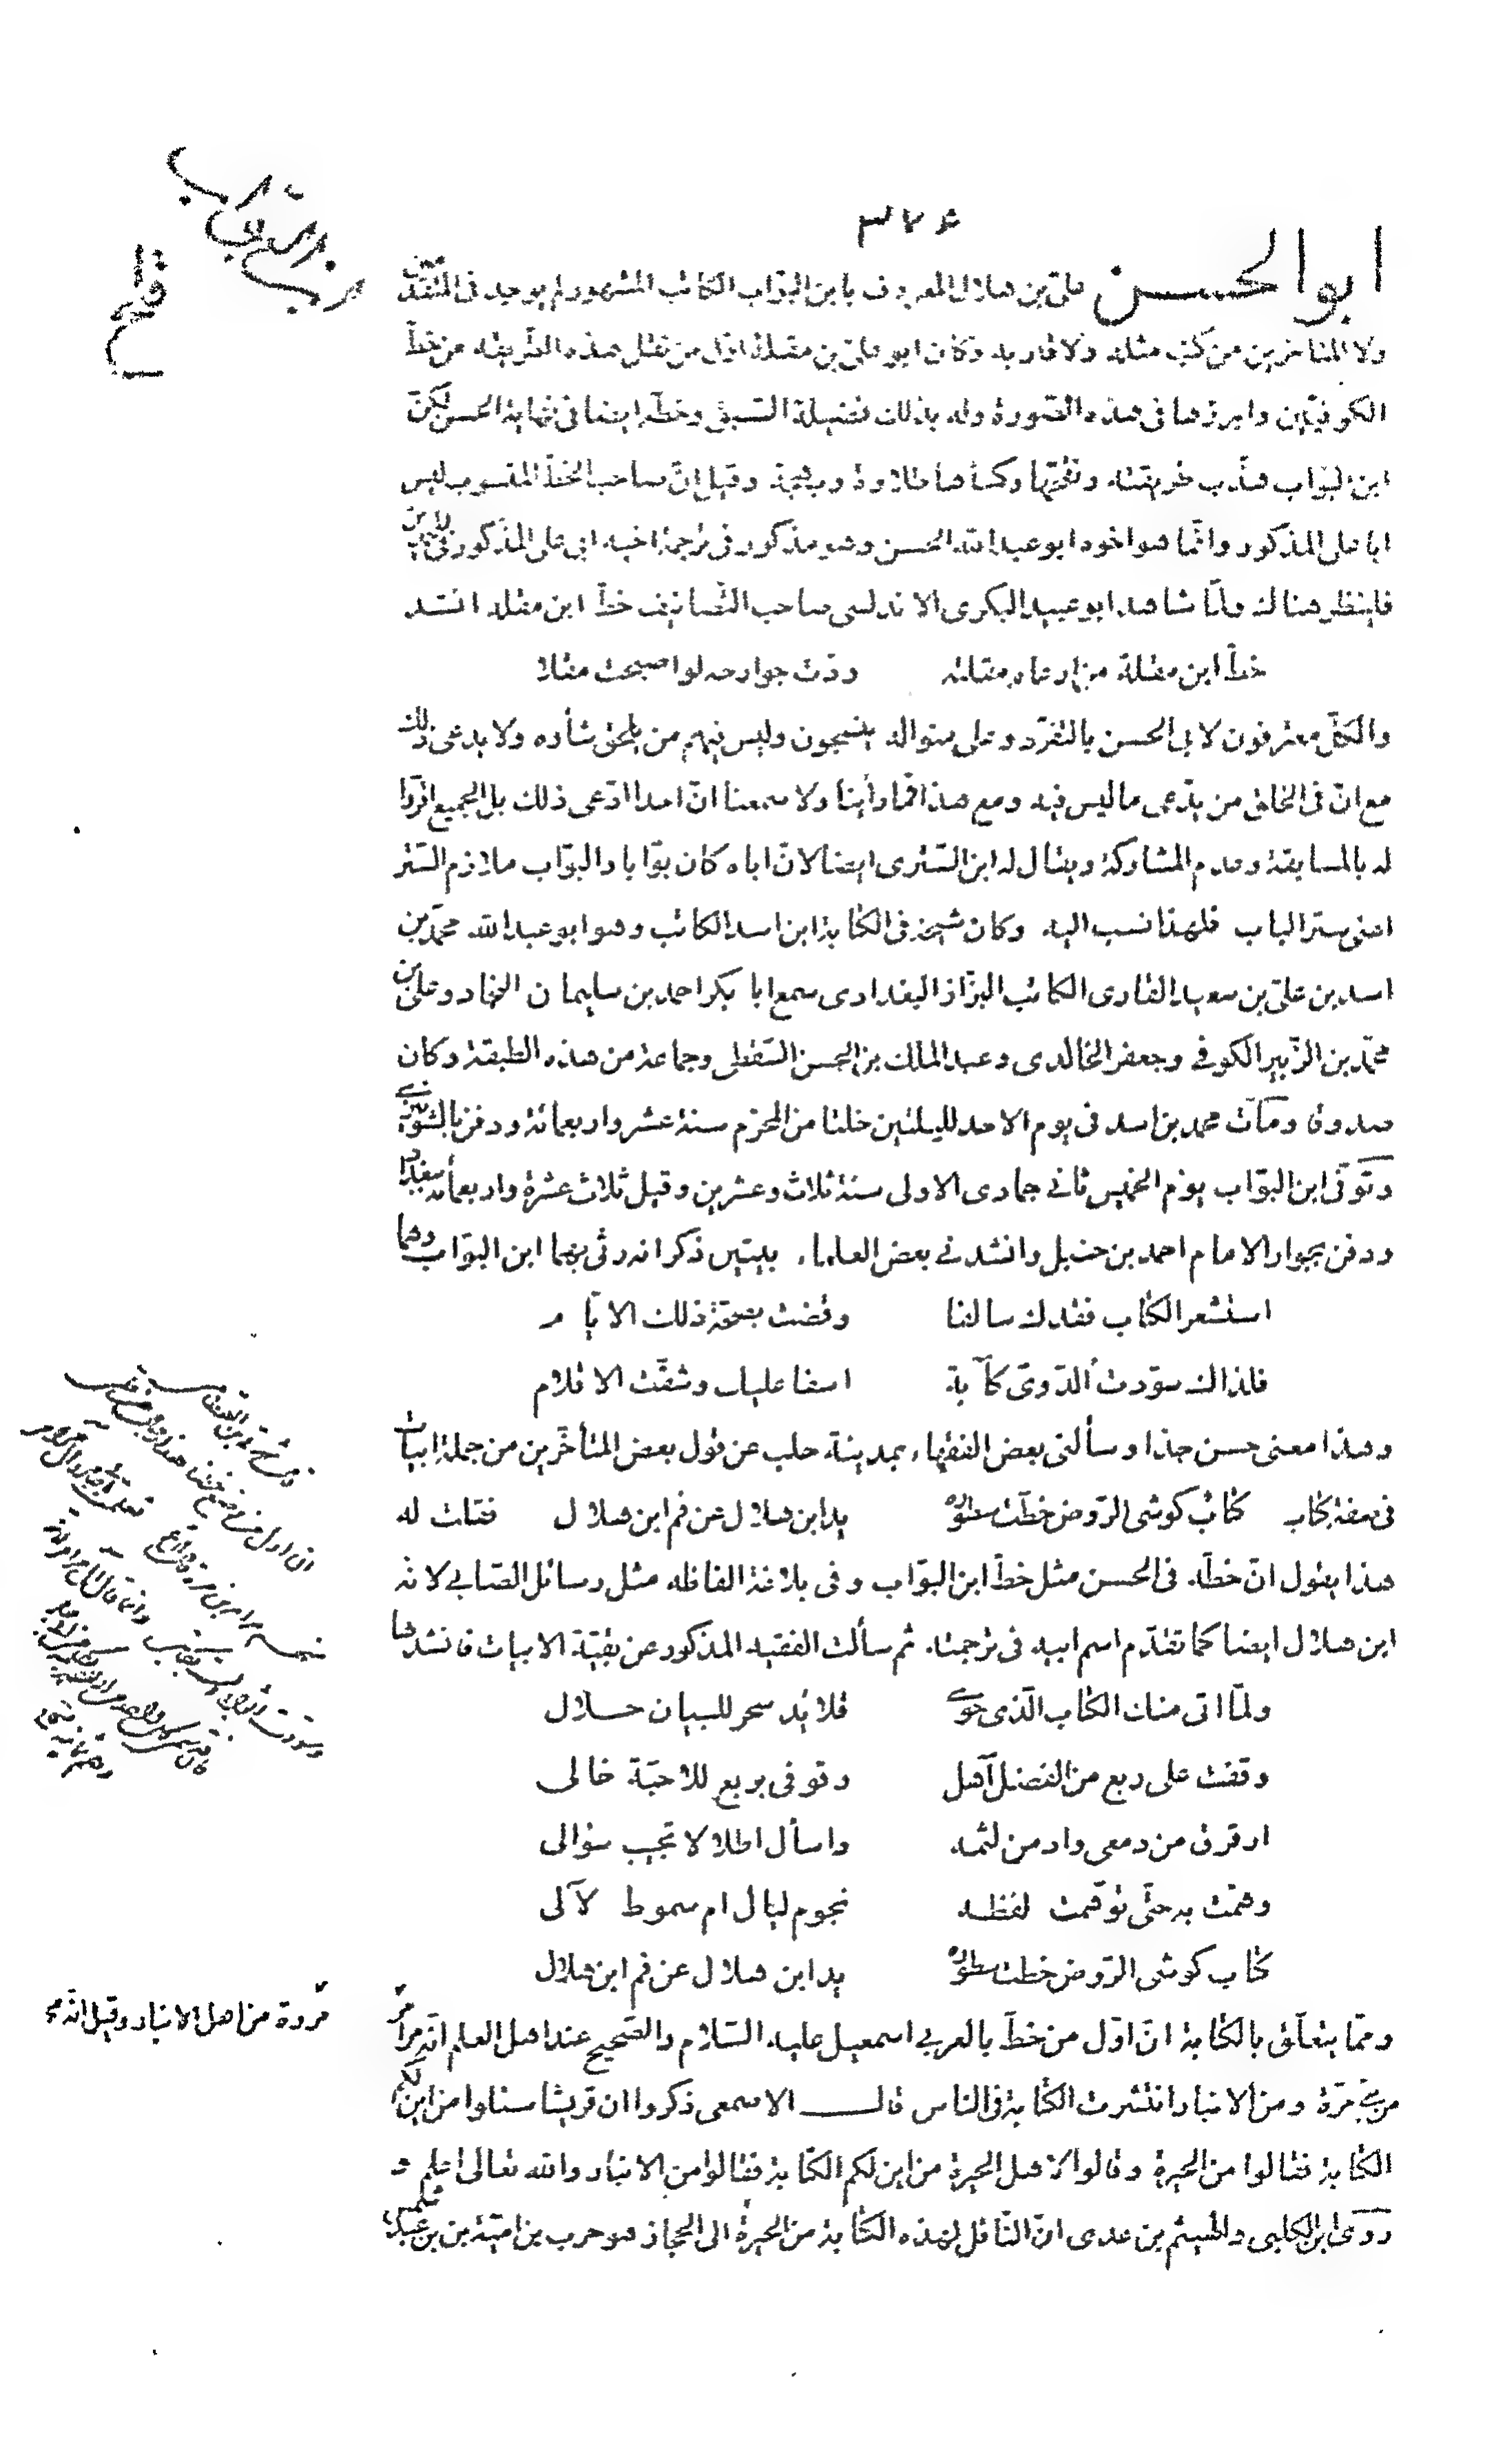 ٣٧۶
ابن البوّاب
ابو الحسن على بن هلال المعروف بابن البوّاب الكاتب المشهور لم يوجد فى المتقدّمين
ولا المتاخرين من كتب مثله ولا قاربه وكان ابو على بن مقلة اوّل من نقل هذه الطّريقه من خطّ
الكوفيّين وابرزها فى هذه الصّورة وله بذلك فضيلة السّبق وخطّه ايضا فى نهاية الحسن لكنّ
ابن البوّاب هذّب طريقته ونقّحها وكساها طلاوة وبهجة وقيل انّ صاحب الخطّ المنسوب ليس
ابا على المذكور وانّما هو اخوه ابو عبد الله الحسن وهو مذكور فى ترجمة اخيه ابى على المذكور فى
فلينظر هناك ولمّا شاهد ابو عبيد البكرى الاندلسى صاحب التّصانيف خطّ ابن مقلة انشد
خطّ ابن مقلة من ارعاه مقلته ودّت جوارحه لو اصبحت مقلا
والكلّ معترفون لابى الحسن بالتفرّد وعلى منواله ينسجون وليس فيهم من يلحق شأوه ولا يدعى ذلك
مع انّ فى الخلق من يدّعى ما ليس فيه ومع هذا فما رأينا ولا سمعنا انّ احدا ادّعى ذلك بل الجميع اقرّوا
له بالمسابقة وعدم المشاركة ويقال له ابن السّترى ايضا لانّ اباه كان بوّابا والبوّاب ملازم السّتر
اعنى ستر الباب فلهذا نسب اليه وكان شيخه فى الكتابة ابن اسد الكاتب وهو ابو عبد الله محمّد بن
اسد بن علىّ بن سعيد القارى الكاتب البزّاز البغدادى سمع ابا بكر احمد بن سليمان النجاد وعلى بن
محمّد بن الزّبير الكوفى وجعفر الخالدى وعبد الملك بن الحسن السّقطى وجماعة من هذه الطبقة وكان
صدوقا ومات محمد بن اسد فى يوم الاحد لليلتين خلتا من المحرّم سنة عشر واربعمائة ودفن بالشّونيزى
وتوّفى ابن البوّاب يوم الخميس ثانى جمادى الاولى سنة ثلاث وعشرين وقيل ثلاث عشرة واربعمأئة ببغداد
ودفن بجوار الامام احمد بن حنبل وانشدنى بعض العلماء بيتين ذكر انه رثى بهما ابن البوّاب وهما
استشعر الكتّاب فقدك سالفا وقضت بصحّة ذلك الايّام
فلذاك سوّدت الدّوىّ كآبة اسفا عليك وشقّت الاقلام
وهذا معنى حسن جدا وسألنى بعض الفقهاء بمدينة حلب عن قول بعض المتأخّرين من جملة ابيات
فى صفة كتاب كتاب كوشى الرّوض خطّت سطوره يد ابن هلال عن فم ابن هلال فقلت له
هذا يقول انّ خطّه فى الحسن مثل خطّ ابن البوّاب وفى بلاغة الفاظه مثل رسائل الصّابى لانه
ابن هلال ايضا كما تقدّم اسم ابيه فى ترجمته ثم سألت الفقيه المذكور عن بقيّة الابيات فانشدها
ولمّا اتى منك الكتاب الّذى حوى قلائد سحر للبيان حلال
وقفت على ربع من الفضل آهل وقوفى بربع للاحبّة خالى
ارقرق من دمعى وادمن لثمه واسأل اطلالا تجيب سؤالى
وهمت به حتّى توهّمت لفظه نجوم ليال ام سموط لآلى
كتاب كوشى الرّوض خطّت سطوره يد ابن هلال عن فم ابن هلال
وممّا يتعلّق بالكتابة انّ اوّل من خطّ بالعربى اسمعيل عليه السّلام والصّحيح عند اهل العلم انّه مرامر
مرّوة من اهل الانبار وقيل انّه من
بنى مرّة ومن الانبار انتشرت الكتابة فى الناس قال الاصمعى ذكروا ان قريشا سئلوا من اين لكم
الكتابة فقالوا من الحيرة وقالوا لاهل الحيرة من اين لكم الكتابة فقالوا من الانبار والله تعالى اعلم و
روى ابن الكلبى والهيثم بن عدى انّ النّاقل لهذه الكتابة من الحيرة الى الحجاز هو حرب بن اميّة بن عبد شمس